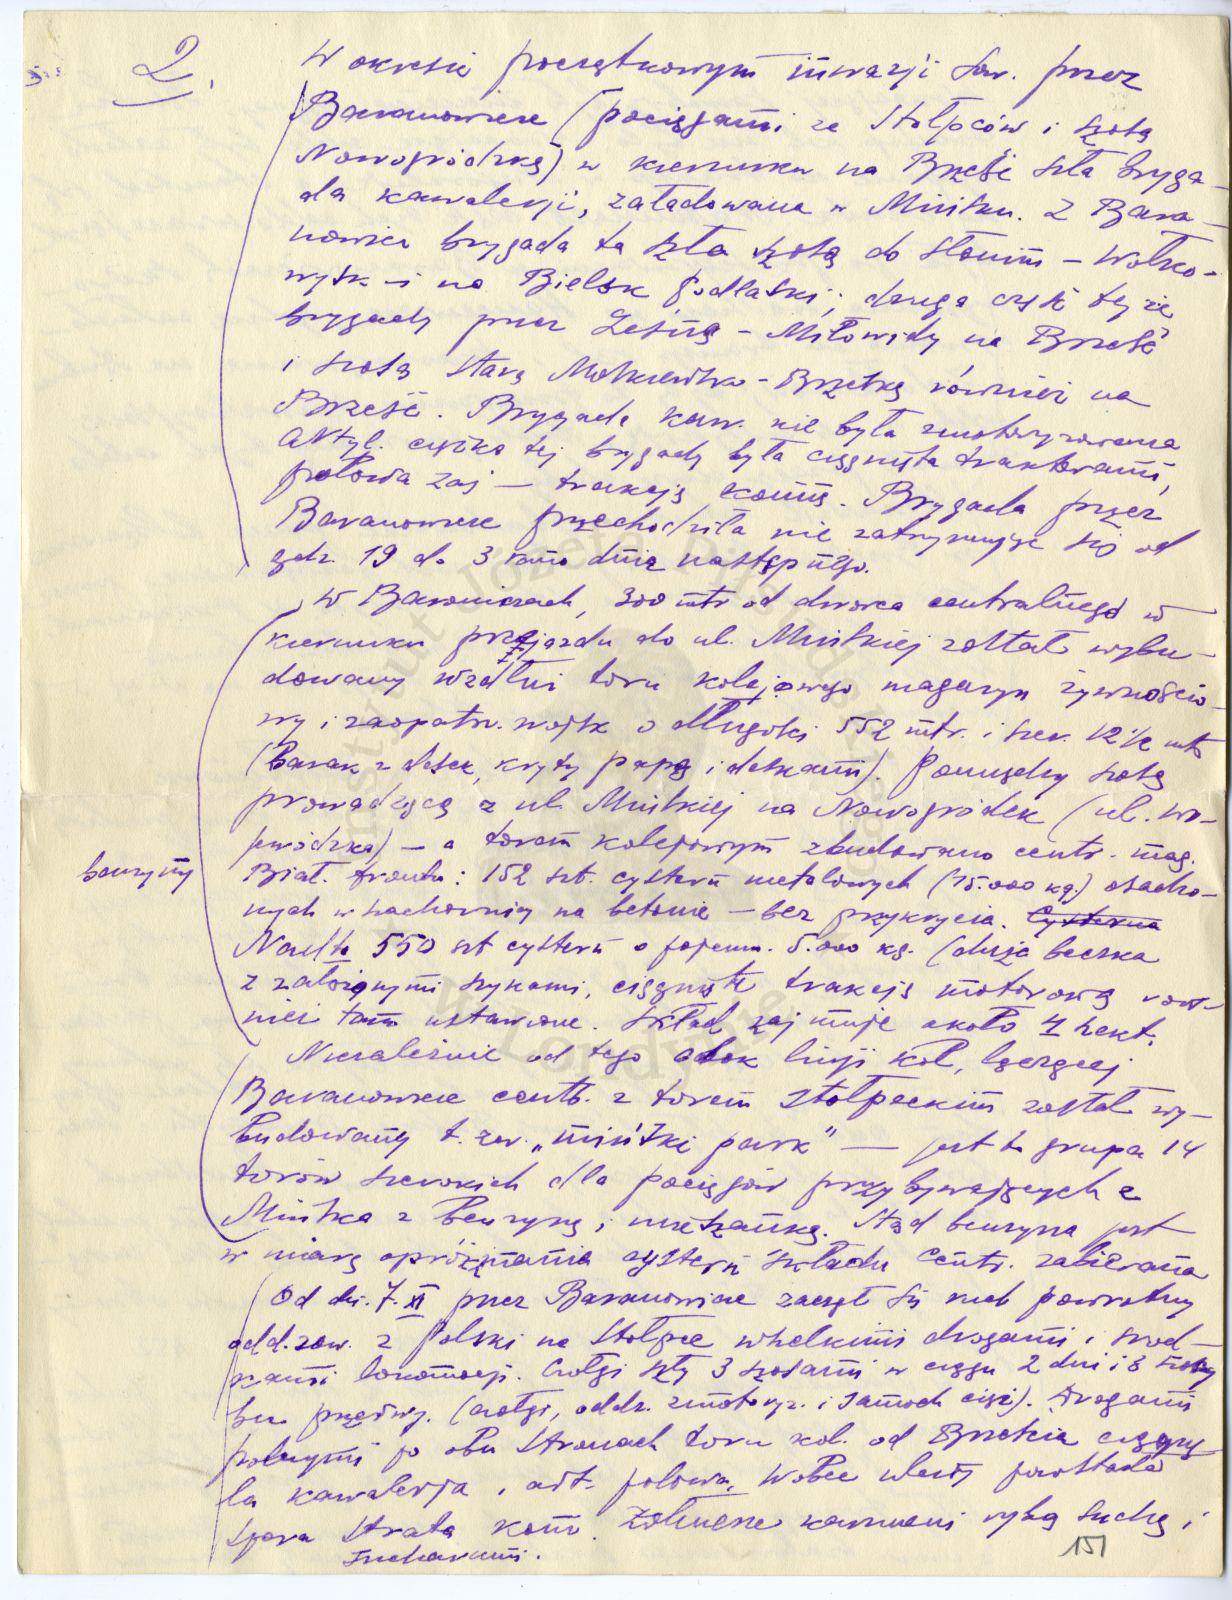 2.
W okresie początkowym inwazji sow. przez
Baranowicze (pociągami ze Stołpców i szosą
Nowogródzką) w kierunku na Brześć szła bryga-
da kawalerji, załadowana w Mińsku. Z Bara-
nowicz brygada ta szła szosą do Słonim - Wołko-
wysk - i na Bielsk Podlaski; druga część tejże
brygady przez Leśną - Miłowidy na Brześć
i szosą starą Moskiewsko - Brzeską również na
Brześć. Brygada kaw. nie była zmotoryzowana
Artyl. ciężka tej brygady była ciągnięta traktorami,
połowa zaś — trakcją konną. Brygada przez
Baranowicze przechodziła nie zatrzymując się od
godz. 19 do 3 rano dnia następnego.
W Baranowiczach, 300 mtr od dworca centralnego w
kierunku przejazdu do ul. Mińskiej został wybu-
dowany wzdłuż toru kolejowego magazyn żywnościo-
wy i zaopatrz. wojsk o długości 552 mtr. i szer. 12 1/2 mtr
(Barak z desek, kryty papą i deskami). Pomiędzy szosą
prowadzącą z ul. Mińskiej na Nowogródek (ul. Wo-
jewódzka) — a torem kolejowym zbudowano centr. mag.
benzyny
Biał. frontu: 152 szt. cystern metalowych (15.000 kg.) osadzo-
nych w szachownicę na betonie — bez przykrycia. Cysterna
Nadto 550 szt cystern o pojemn. 5.000 kg. (duża beczka
z założonymi szynami, ciągnięte trakcją motorową rów-
nież tam ustawione. Skład zajmuje około 4 hekt.
Niezależnie od tego obok linji kol. łączącej
Baranowicze centr. z torem stołpeckim został wy-
budowany t. zw. „miński park" — jest to grupa 14
torów szerokich dla pociągów przybywających z
Mińska z benzyną i mieszanką. Stąd benzyna jest
w miarę opróżniania cystern składu centr. zabierana
Od dn. 7.XI przez Baranowicze zaczął się ruch powrotny
odd. sow. z Polski na Stołpce wszelkimi drogami i środ-
kami lokomocji. Czołgi szły 3 szosami w ciągu 2 dni i 3 nocy
bez przerwy. (czołgi, oddz. zmotoryz. i samoch. cięż). Drogami
polnymi po obu stronach toru kol. od Brześcia ciągnę-
ła kawalerja i art. polowa. Wobec ulewy powstała
spora strata koni. Żołnierze karmieni rybą suchą i
sucharami.
151